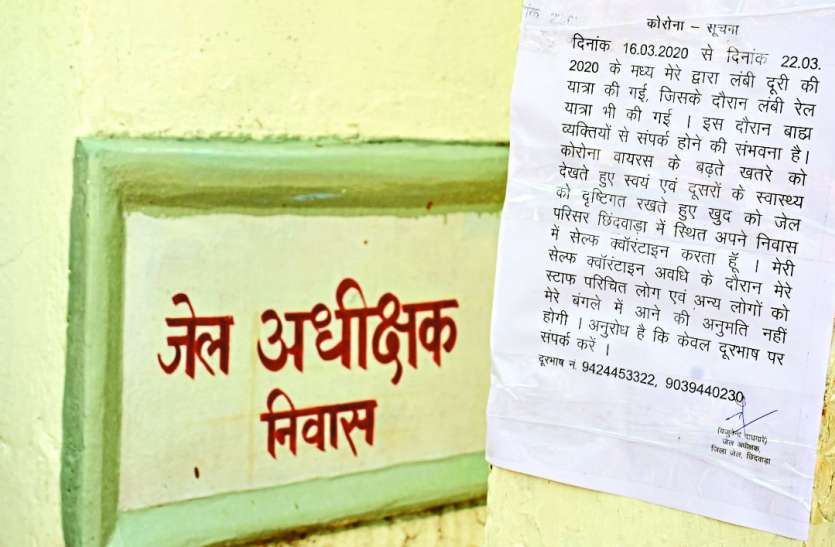 जेल अधीक्षक
निवास
कोरोना – सूचना
दिनांक 16.03.2020 से दिनांक 22.03.
2020 के मध्य मेरे द्वारा लंबी दूरी की
यात्रा की गई, जिसके दौरान लंबी रेल
यात्रा भी की गई । इस दौरान बाह्य
व्यक्तियों से संपर्क होने की संभवना है।
कोरोना वायरस के बढ़ते खतरे को
देखते हुए स्वयं एवं दूसरों के स्वास्थ्य
को दृष्टिगत रखते हुए खुद को जेल
परिसर छिंदवाड़ा में स्थित अपने निवास
में सेल्फ क्वॉरंटाइन करता हूँ । मेरी
सेल्फ क्वॉरंटाइन अवधि के दौरान मेरे
स्टाफ परिचित लोग एवं अन्य लोगों को
मेरे बंगले में आने की अनुमति नहीं
होगी । अनुरोध है कि केवल दूरभाष पर
संपर्क करें ।
दूरभाष नं. 9424453322, 9039440230
जेल अधीक्षक,
जिला जेल, छिंदवाड़ा